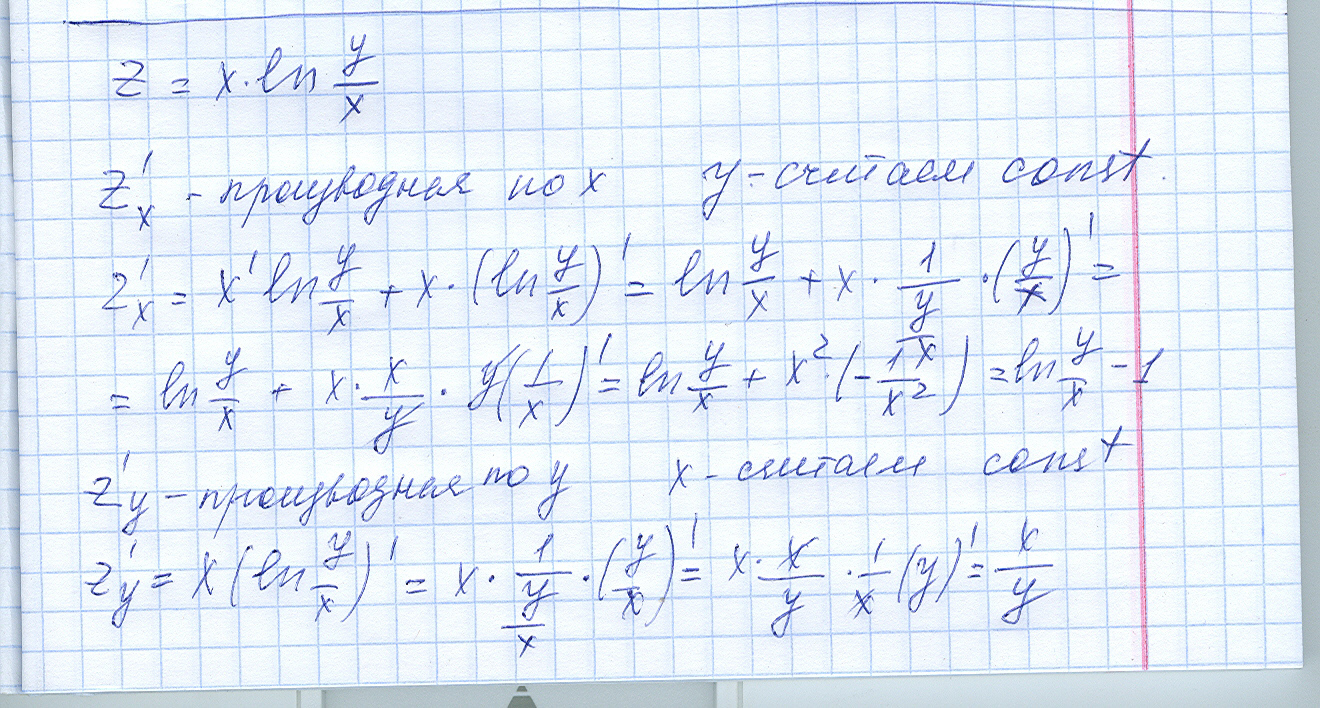 z = x·ln y/x
z'x - производная по x y - считаем const.
z'x = x' ln y/x + x·(ln y/x)' = ln y/x + x · 1/(y/x) · (y/x)' =
= ln y/x + x · x/y · y(1/x)' = ln y/x + x²·(-1/x²) = ln y/x - 1
z'y - производная по y x - считаем const
z'y = x(ln y/x)' = x · 1/(y/x) · (y/x)' = x · x/y · 1/x (y)' = x/y